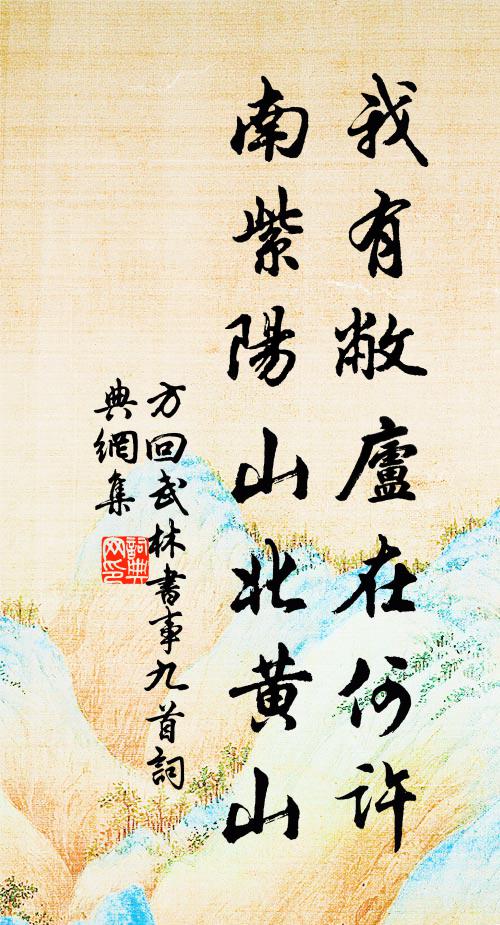 我有敝廬在何許
南紫陽山北黄山
方回武林書事九首詞
典網集
詞典
网印